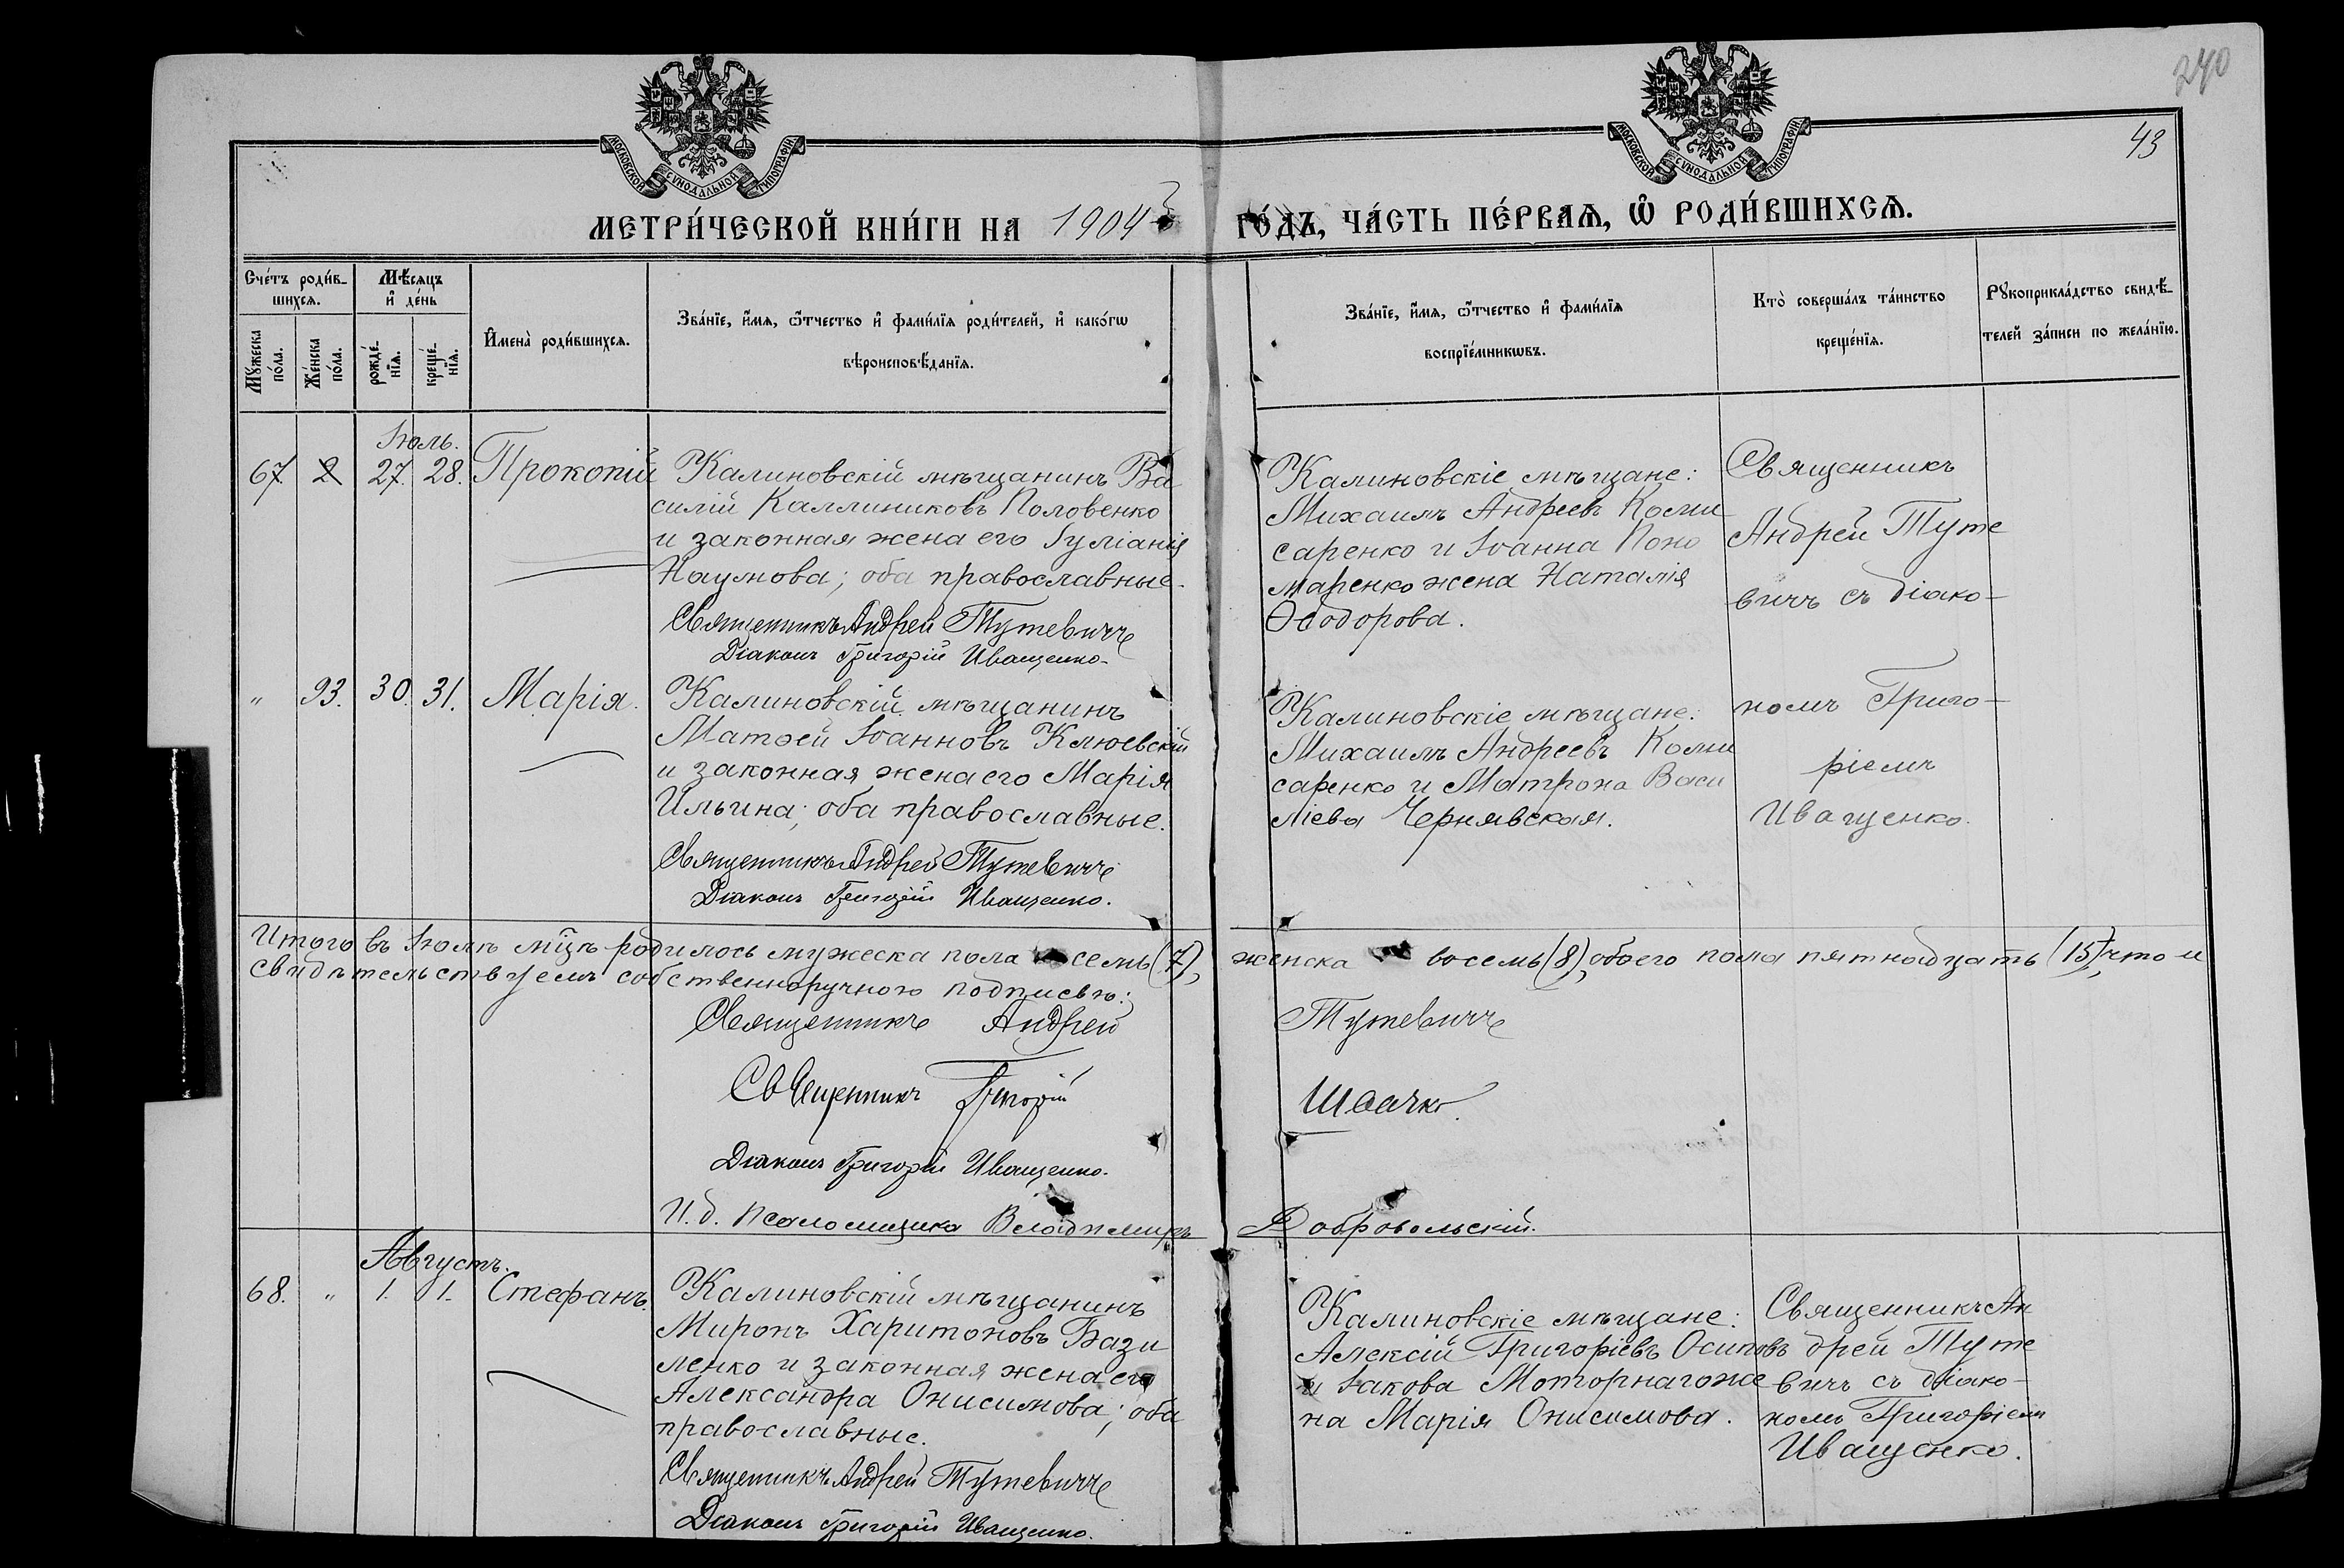 240
43
МОСКОВСКОЙ СѴНОДАЛЬНОЙ ТИПОГРАФІИ
МОСКОВСКОЙ СѴНОДАЛЬНОЙ ТИПОГРАФІИ
МЕТРИ́ЧЕСКОЙ КНИ́ГИ НА 1904 ГО́ДЪ, ЧА́СТЬ ПЕ́РВАѦ, Ѽ РОДИ́ВШИХСѦ.
Счетъ родив-
шихсѧ.
Мѣсяцъ
и день
Мꙋжеска
пола.
Женска
пола.
рожде-
нїѧ.
креще-
нїѧ.
Имена родившихсѧ.
Званїе, имѧ, ѿчество и фамилїѧ родителей, и какогѡ
вѣроисповѣданїѧ.
Званїе, имѧ, ѿчество и фамилїѧ
воспрїемникѡвъ.
Кто совершалъ таинство
крещенїѧ.
Рꙋкоприкладство свидѣ-
телей записи по желанїю.
Іюль.
67 27. 28. Прокопій
Калиновскій мѣщанинъ Ва
силій Каллиниковъ Половенко
и законная жена его Іуліанія
Наумова; оба православные.
Священникъ Андрей Тутевичъ
Діаконъ Григорій Иващенко.
Калиновскіе мѣщане:
Михаилъ Андреевъ Коми
саренко и Іоанна Поно
маренко жена Наталія
Ѳеодорова.
Священникъ
Андрей Туте
вичъ съ діако-
номъ Григо-
ріемъ
Иващенко.
" 93. 30. 31. Марія.
Калиновскій мѣщанинъ
Матѳей Іоанновъ Клюевскій
и законная жена его Марія
Ильина; оба православные.
Священникъ Андрей Тутевичъ
Діаконъ Григорій Иващенко.
Калиновскіе мѣщане:
Михаилъ Андреевъ Коми
саренко и Матрона Васи
ліева Чернявская.
Итого въ Іюлѣ мцѣ родилось мужеска пола семь (7), женска восемь (8), обоего пола пятнадцать (15), что и
свидѣтельствуемъ собственноручною подписью:
Священникъ Андрей Тутевичъ
Священникъ Григорій Шва́чко.
Діаконъ Григорій Иващенко.
И. д. псаломщика Владимиръ Добровольскій.
Августъ.
68. " 1. 1. Стефанъ.
Калиновскій мѣщанинъ
Миронъ Харитоновъ Бази
ленко и законная жена его
Александра Онисимова; оба
православные.
Священникъ Андрей Тутевичъ
Діаконъ Григорій Иващенко.
Калиновскіе мѣщане:
Алексій Григоріевъ Осиповъ
и Іакова Моторнаго же
на Марія Онисимова.
Священникъ Ан
дрей Туте
вичъ съ діако-
номъ Григоріемъ
Иващенко.